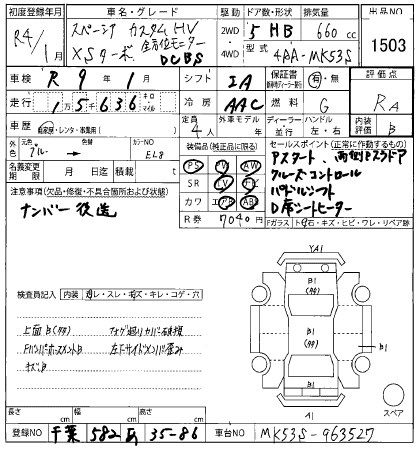 初度登録年月 車名・グレード 駆動 ドア数・形状 排気量 出品No
R4/1月 スペーシア カスタム HV 2WD 5 HB 660 cc 1503
XSターボ 全方位モニター 4WD 型式 4AA-MK53S
DCBS
車検 R 9年 1月 シフト IA 保証書 有・無 評価点
走行 15,636 キロ マイル 冷房 AAC 燃料 G RA
車歴 自家用・レンタ・事業用 定員 4人 外車モデル 年 ディーラー・並行 ハンドル 左・右 内装評価 B
外色 元色 ブルー 色替 カラーNO EL8
装備品(純正品に限る) セールスポイント(正常に作動するもの)
PS PW AW Pスタート、両側Pスライドドア
名義変更期限 月 日迄 積載 t SR TV ナビ クルーズコントロール
注意事項(欠品・修復・不具合箇所および状態) カワ エアB ABS パドルシフト
ナンバー後送 R券 7040円 D席シートヒーター
Fガラス トビ石・キズ・ヒビ・ワレ・リペア跡
検査員記入 内装 ヨゴレ・スレ・キズ・キレ・コゲ・穴
YA1
B1
上面B(タタ)
B1
(タタ)
B1
キズ,B
A1
スペア
長さ cm 幅 cm 高さ cm
登録NO 千葉 582 35-86 車台NO MK53S-963527